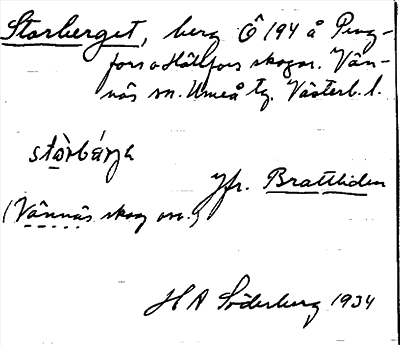 Storberget, berg Ö 194 å Peng-
fors o Hällfors skogar. Vän-
näs sn. Umeå tg. Västerb. l.
stòrbárjh
Jfr. Brattliden
(Vännäs skog om.)
H A Söderberg 1934